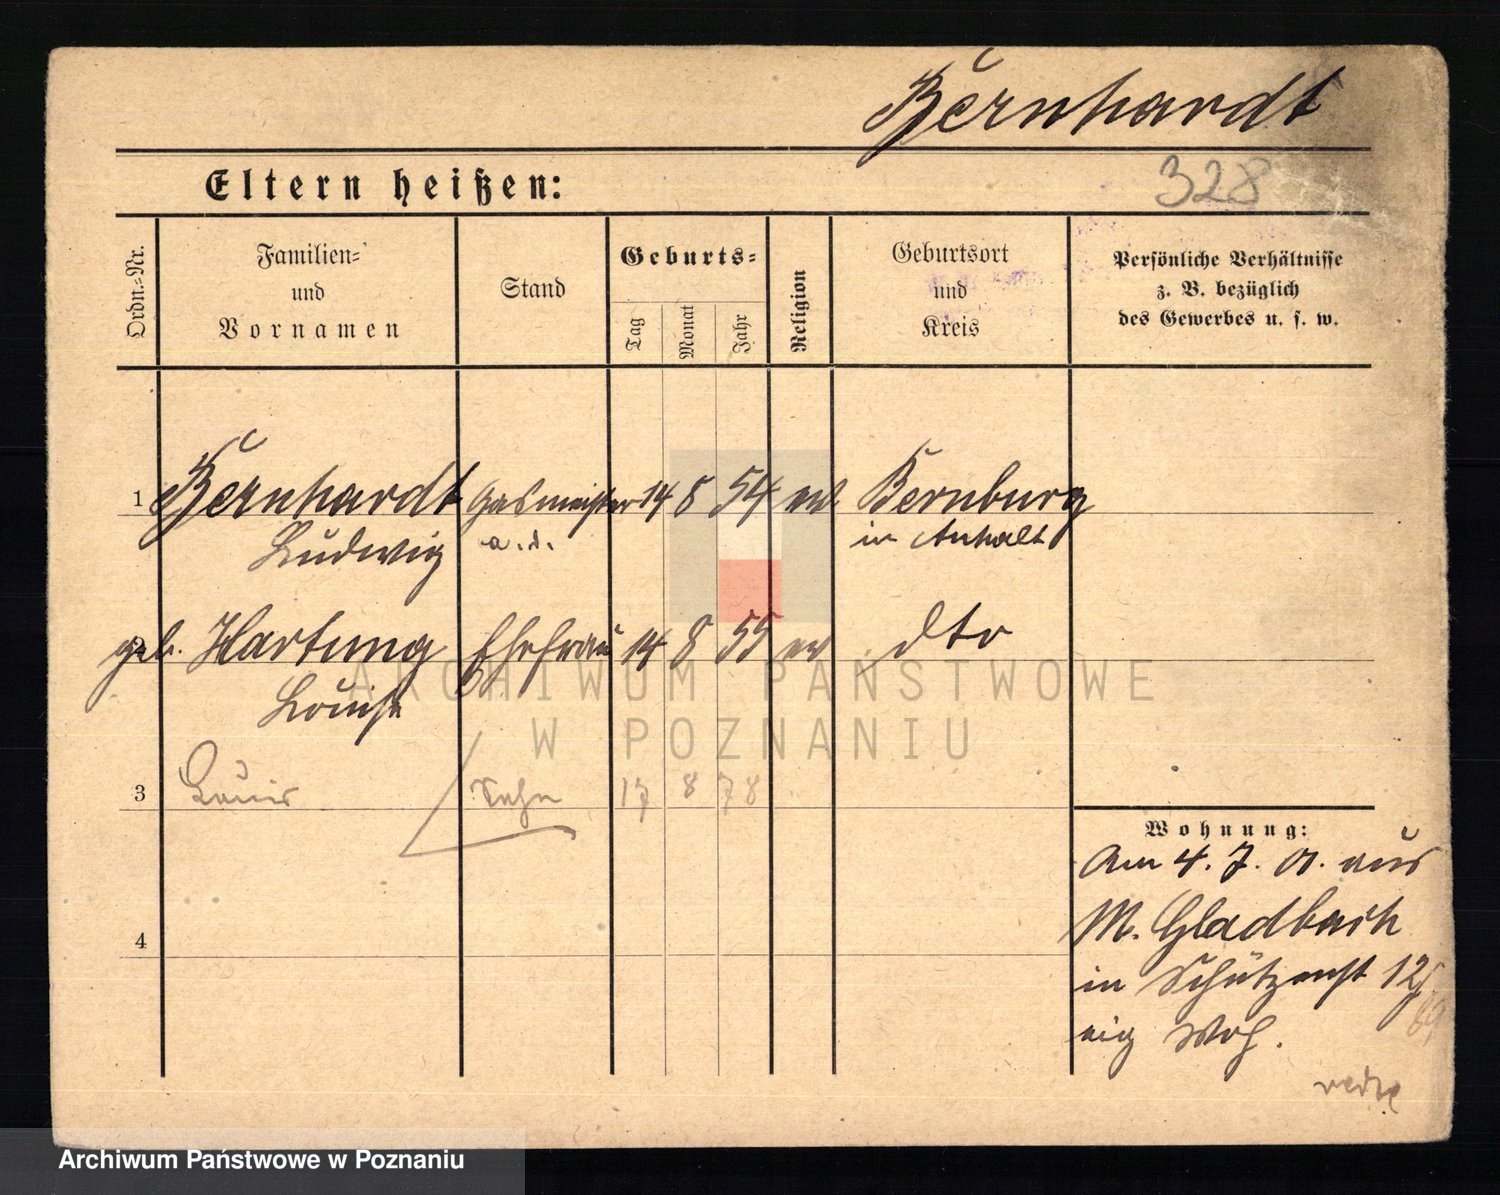 Bernhardt
328
Eltern heißen:
Ordn.-Nr.
Familien-
und
Vornamen
Stand
Geburts-
Tag
Monat
Jahr
Religion
Geburtsort
und
Kreis
Persönliche Verhältnisse
z. B. bezüglich
des Gewerbes u. s. w.
1 Bernhardt Gasmeister 14 8 54 ev Bernburg
Ludwig a. d. in Anhalt
2 geb. Hartung Ehefrau 14 8 55 ev dto
Louise
ARCHIWUM PAŃSTWOWE
W POZNANIU
3 Louis Sohn 17 8 78
Wohnung:
Am 4. 7. 01. aus
4
M. Gladbach
in Schützenst 12
eig Woh.
Archiwum Państwowe w Poznaniu